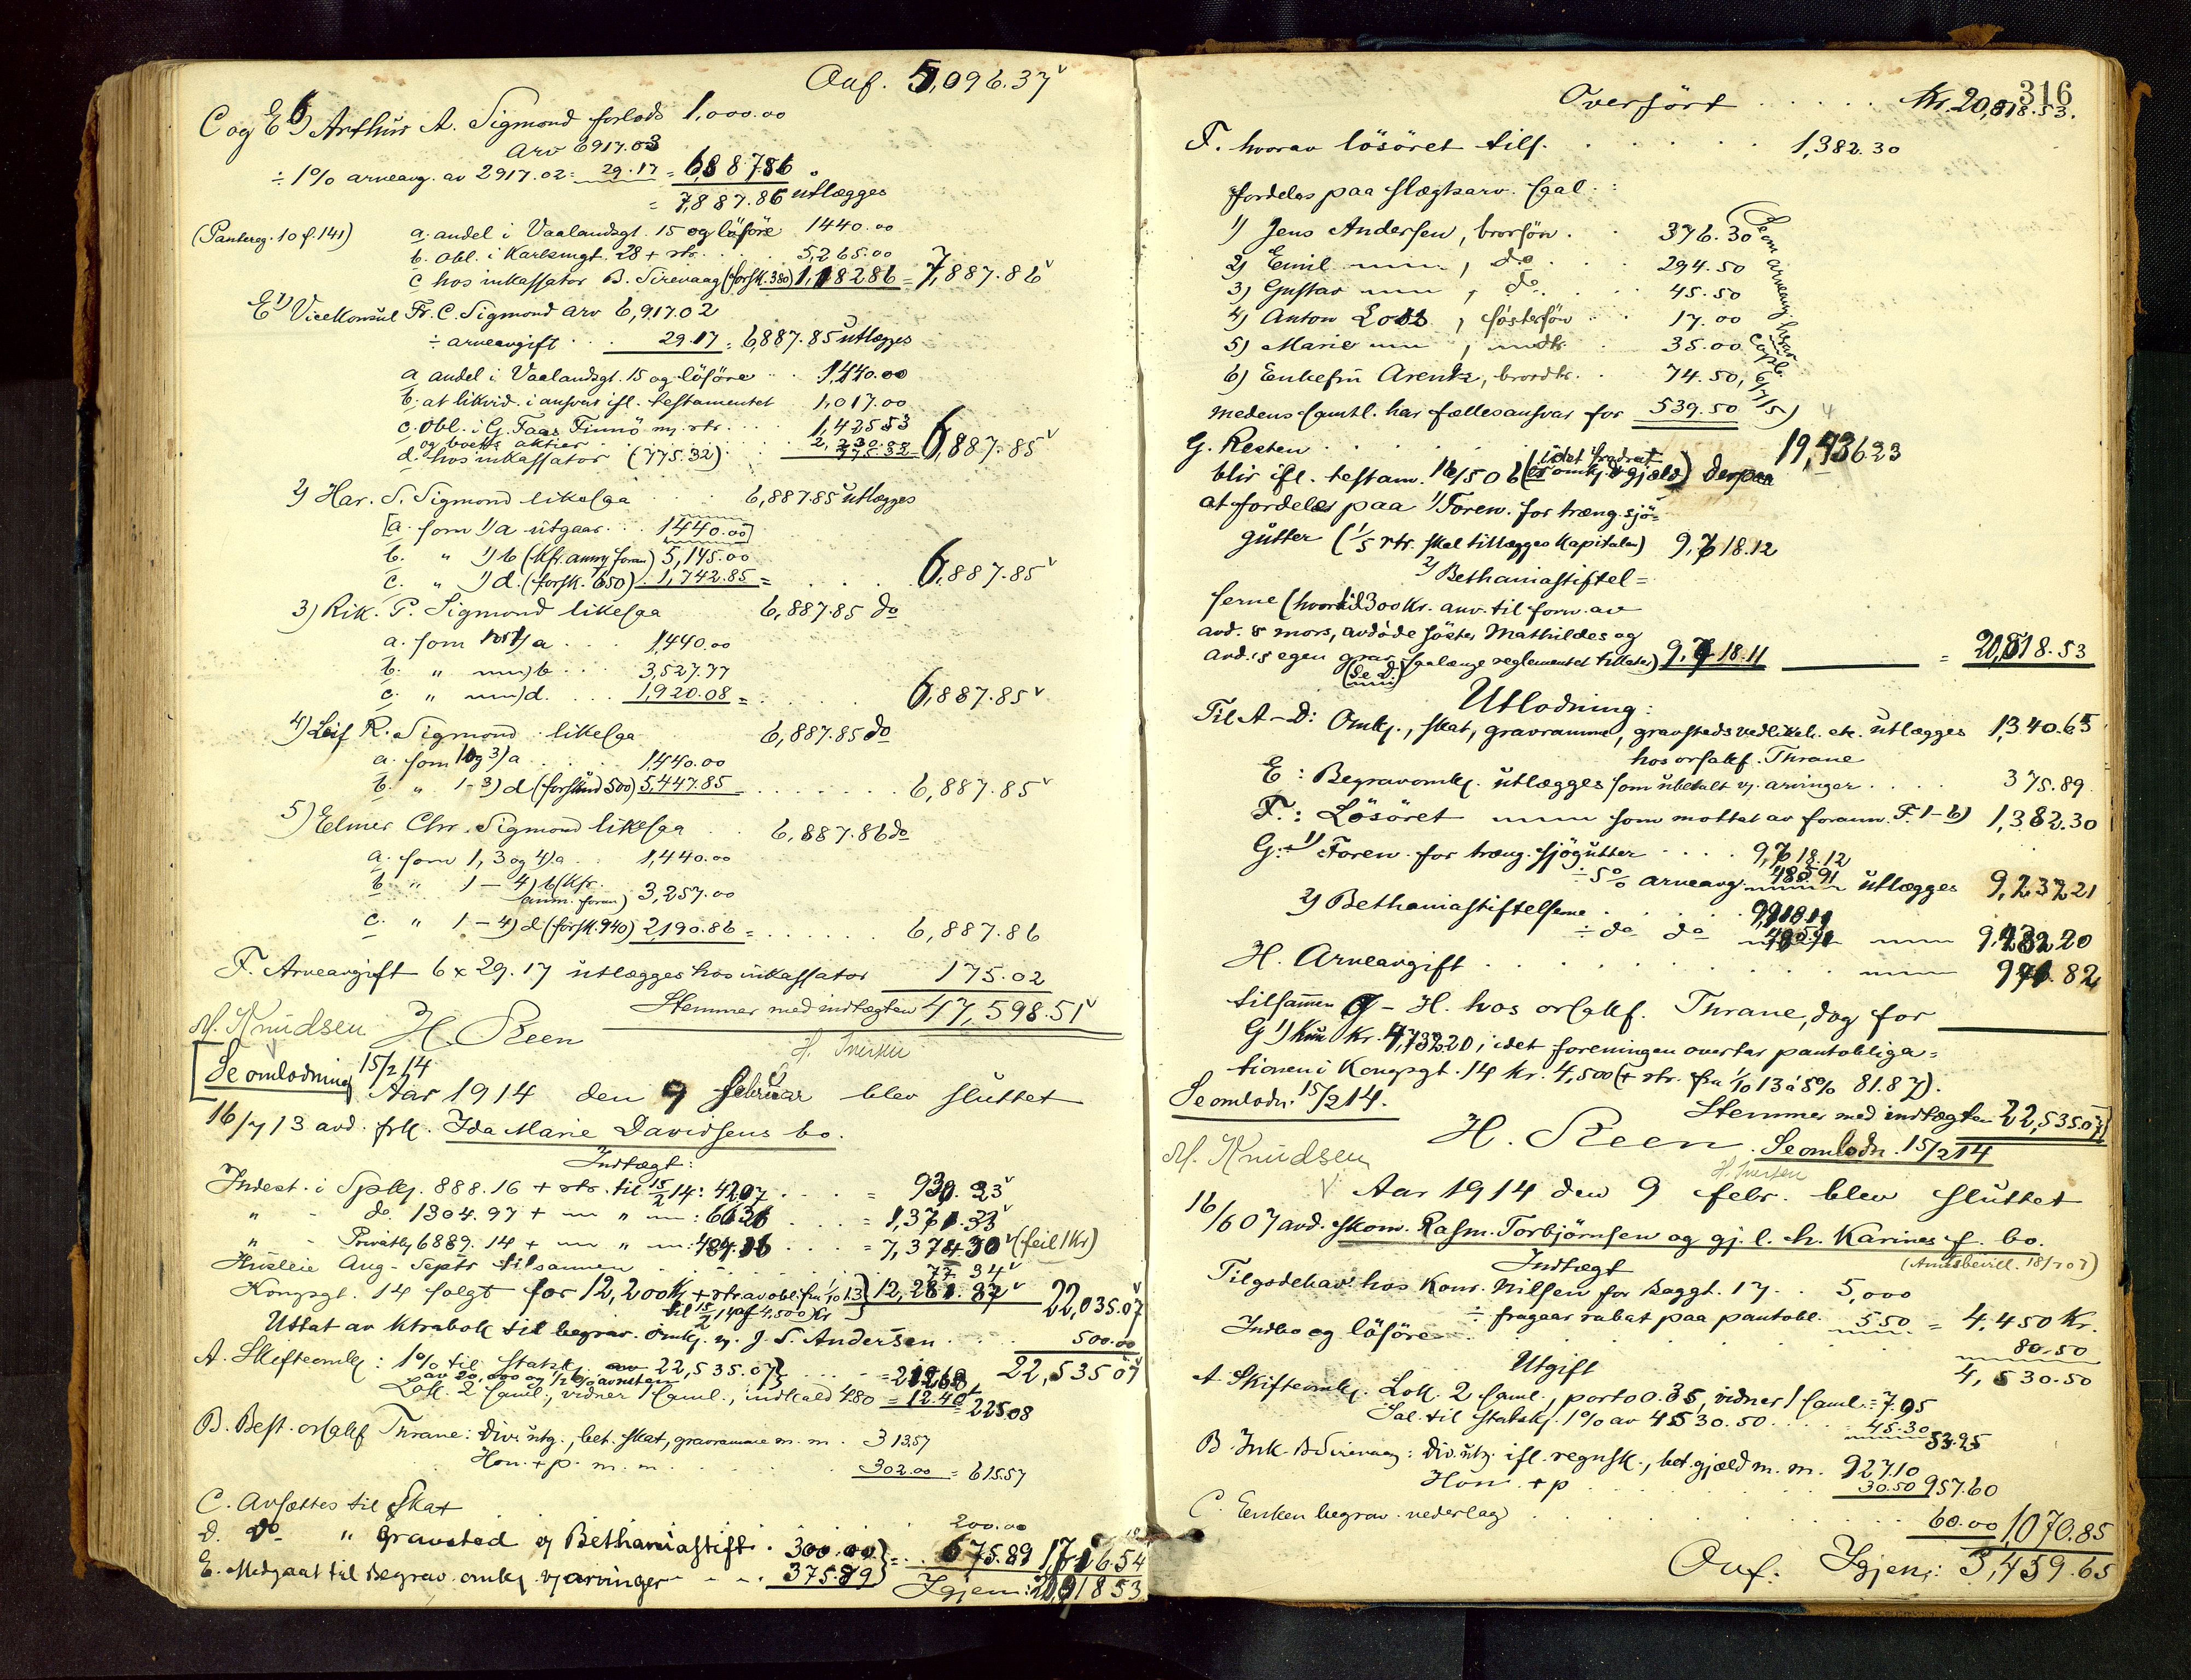 Ovf. 5,096.37
C og E 6) Arthur A. Sigmond forlods 1,000.00
Arv 6917.03
÷ 1% arveavg. av 2917.02 = 29.17 = 6,887.86
= 7,887.86 utlægges
(Pantereg. 10 f. 141) a. andel i Vaalandsgt. 15 og løsøre 1440.00
b. obl. i Karlsmgt. 28 + rtr. 5,265.00
c hos inkassator B. Sirevaag (forsk. 380) 1,182.86 = 7,887.86
E 1) Vicekonsul Fr. C. Sigmond arv 6,917.02
÷ arveavgift 29.17 = 6,887.85 utlægges
a andel i Vaalandsgt. 15 og løsøre 1,440.00
b. at likvid. i ansvar ifl. testamentet 1,017.00
c. obl. i G. Faas Finnö m. rtr. 1,425.53
og boets aktier 2,230.00
d. hos inkassator (775.32) 775.32 6,887.85
2) Har. S. Sigmond likesaa 6,887.85 utlægges
[a. som 1) a utgaar 1440.00]
b. " 1) b (Kfr. anm foran) 5,145.00
c. " 1) d. (forsk. 650) 1,742.85 = 6,887.85
3) Rik. P. Sigmond likesaa 6,887.85 do
a. som 1) a 1,440.00
b. " b 3,527.77
c. " d. 1,920.08 = 6,887.85
4) Leif R. Sigmond likesaa 6,887.85 do
a. som 1 og 3) a 1,440.00
b. " 1-3) d (forskud 500) 5,447.85 6,887.85
5) Elmer Chr. Sigmond likesaa 6,887.86 do
a. som 1, 3 og 4) a 1,440.00
b. " 1-4) b (Kfr.
anm. foran) 3,257.00
c. " 1-4) d (forsk. 940) 2,190.86 = 6,887.86
F. Arveavgift 6 x 29.17 utlægges hos inkassator 175.02
Stemmer med indtægten 47,598.51
M. Knudsen H. Steen H. Iversen
Se omlodning 15/2 14
Aar 1914 den 9 februar blev sluttet
16/7 13 avd. frk. Ida Marie Davidsens bo.
Indtægt:
Indest. i Spbk. 888.16 + rtr. til 15/2 14: 42.07 = 930.23
" - do. 1304.97 + " : 66.26 = 1,371.23
" - Privatbk 6889.14 + " : 484.16 = 7,374.30 (feil 1 Kr)
Husleie Aug - Septr tilsammen 77.34
Kongsgt. 14 solgt for 12,200 Kr + rtr av obl. fra 1/10 13 12,281.87 22,035.07
til 15/2 14 af 4,500 Kr
Uttat av Ktrabok til begrav. omk. v. J. S. Andersen 500.00
A. Skifteomk: 1% til statsk. av 22,535.07 22,535.07
av 20,000 og 1/2% av resten = 212.68
Lok. 2 saml., vidner 1 saml., indkald 4.80 = 12.40 = 225.08
B. Best. orsakf Thrane: Div. utg., bet. skat, gravramme m. m. 313.57
Hon. + p. m. m. 302.00 = 615.57
C. Avsættes til skat 200.00
D. do " gravsted v. Bethaniastift. 300.00
E. Medgaat til begrav. omk v. arvinger 375.89 = 675.89 1,716.54
Igjen: 20,818.53
316
Overført Kr. 20,818.53.
F. hvorav løsöret tils. 1,382.30
fordeles paa slægtsarv. saal.:
1) Jens Andersen, brorsön 376.30
2) Emil, do 294.50
3) Gustav, do. 45.50
4) Anton Lous, søstersön 17.00
5) Marie 35.00
6) Enkefru Arentz, brordtr. 74.50,
medens samtl. har fællesansvar for 539.50)
G. Resten 19,436.23
blir ifl. testam. 16/5 06 (idet fradrat er omk. & gjæld) derpaa
at fordeles paa 1) Foren. for træng. sjö-
gutter (1/5 rtr. skal tillægges Kapitalen) 9,718.12
2) Bethaniastiftel-
serne (hvortil 300 Kr. anv. til forn. av
avd.s mors, avdöde søster Mathildes og
avd.s egen grav saalænge reglementet tillater) 9,718.11 = 20,818.53
Utlodning:
Til A-D: Omk., skat, gravramme, gravstedsvedlikeh. etc. utlægges 1,340.65
hos orsakf. Thrane
E: Begravomk. utlægges som ubetalt v. arvinger 375.89
F.: Løsöret som mottat av foranm. F. 1-6) 1,382.30
G: 1) Foren. for træng. sjögutter 9,718.12
÷ 5% arveavg. 485.91 utlægges 9,232.21
2) Bethaniastiftelserne 9,718.11
÷ do do 485.91 9,232.20
H. Arveavgift 971.82
tilsammen G - H. hos orsakf. Thrane, dog for
G 1) kun Kr. 4,732.20, idet foreningen overtar pantobliga-
tionen i Kongsgt. 14 Kr. 4,500 (+ rtr. fra 1/10 13 á 5% 81.87).
Se omlodn. 15/2 14.
Stemmer med indtægten 22,535.07
H. Steen. Se omlodn. 15/2 14
M. Knudsen H. Iversen
Aar 1914 den 9 febr. blev sluttet
16/6 07 avd. skom. Rasm. Torbjørnsen og gj. l. h. Karines f. bo.
Indtægt (Amtsbevill. 18/7 07)
Tilgodehav. hos Konr. Nilsen for Baggt. 17 5,000
÷ fragaar rabat paa pantobl. 550 = 4,450 Kr.
Indbo og løsöre 80.50
Utgift 4,530.50
A. Skifteomk. Lok. 2 saml., porto 0.35, vidner 1 saml. = 7.95
Sal. til statsk. 1% av 4530.50 45.30 53.25
B. Ink. B Sirevaag: Div. utg. ifl. regnsk., bet. gjæld m. m. 927.10
Hon. + p 30.50 957.60
C. Enken begrav. nederlag 60.00 1,070.85
Ovf. Igjen: 3,459.65